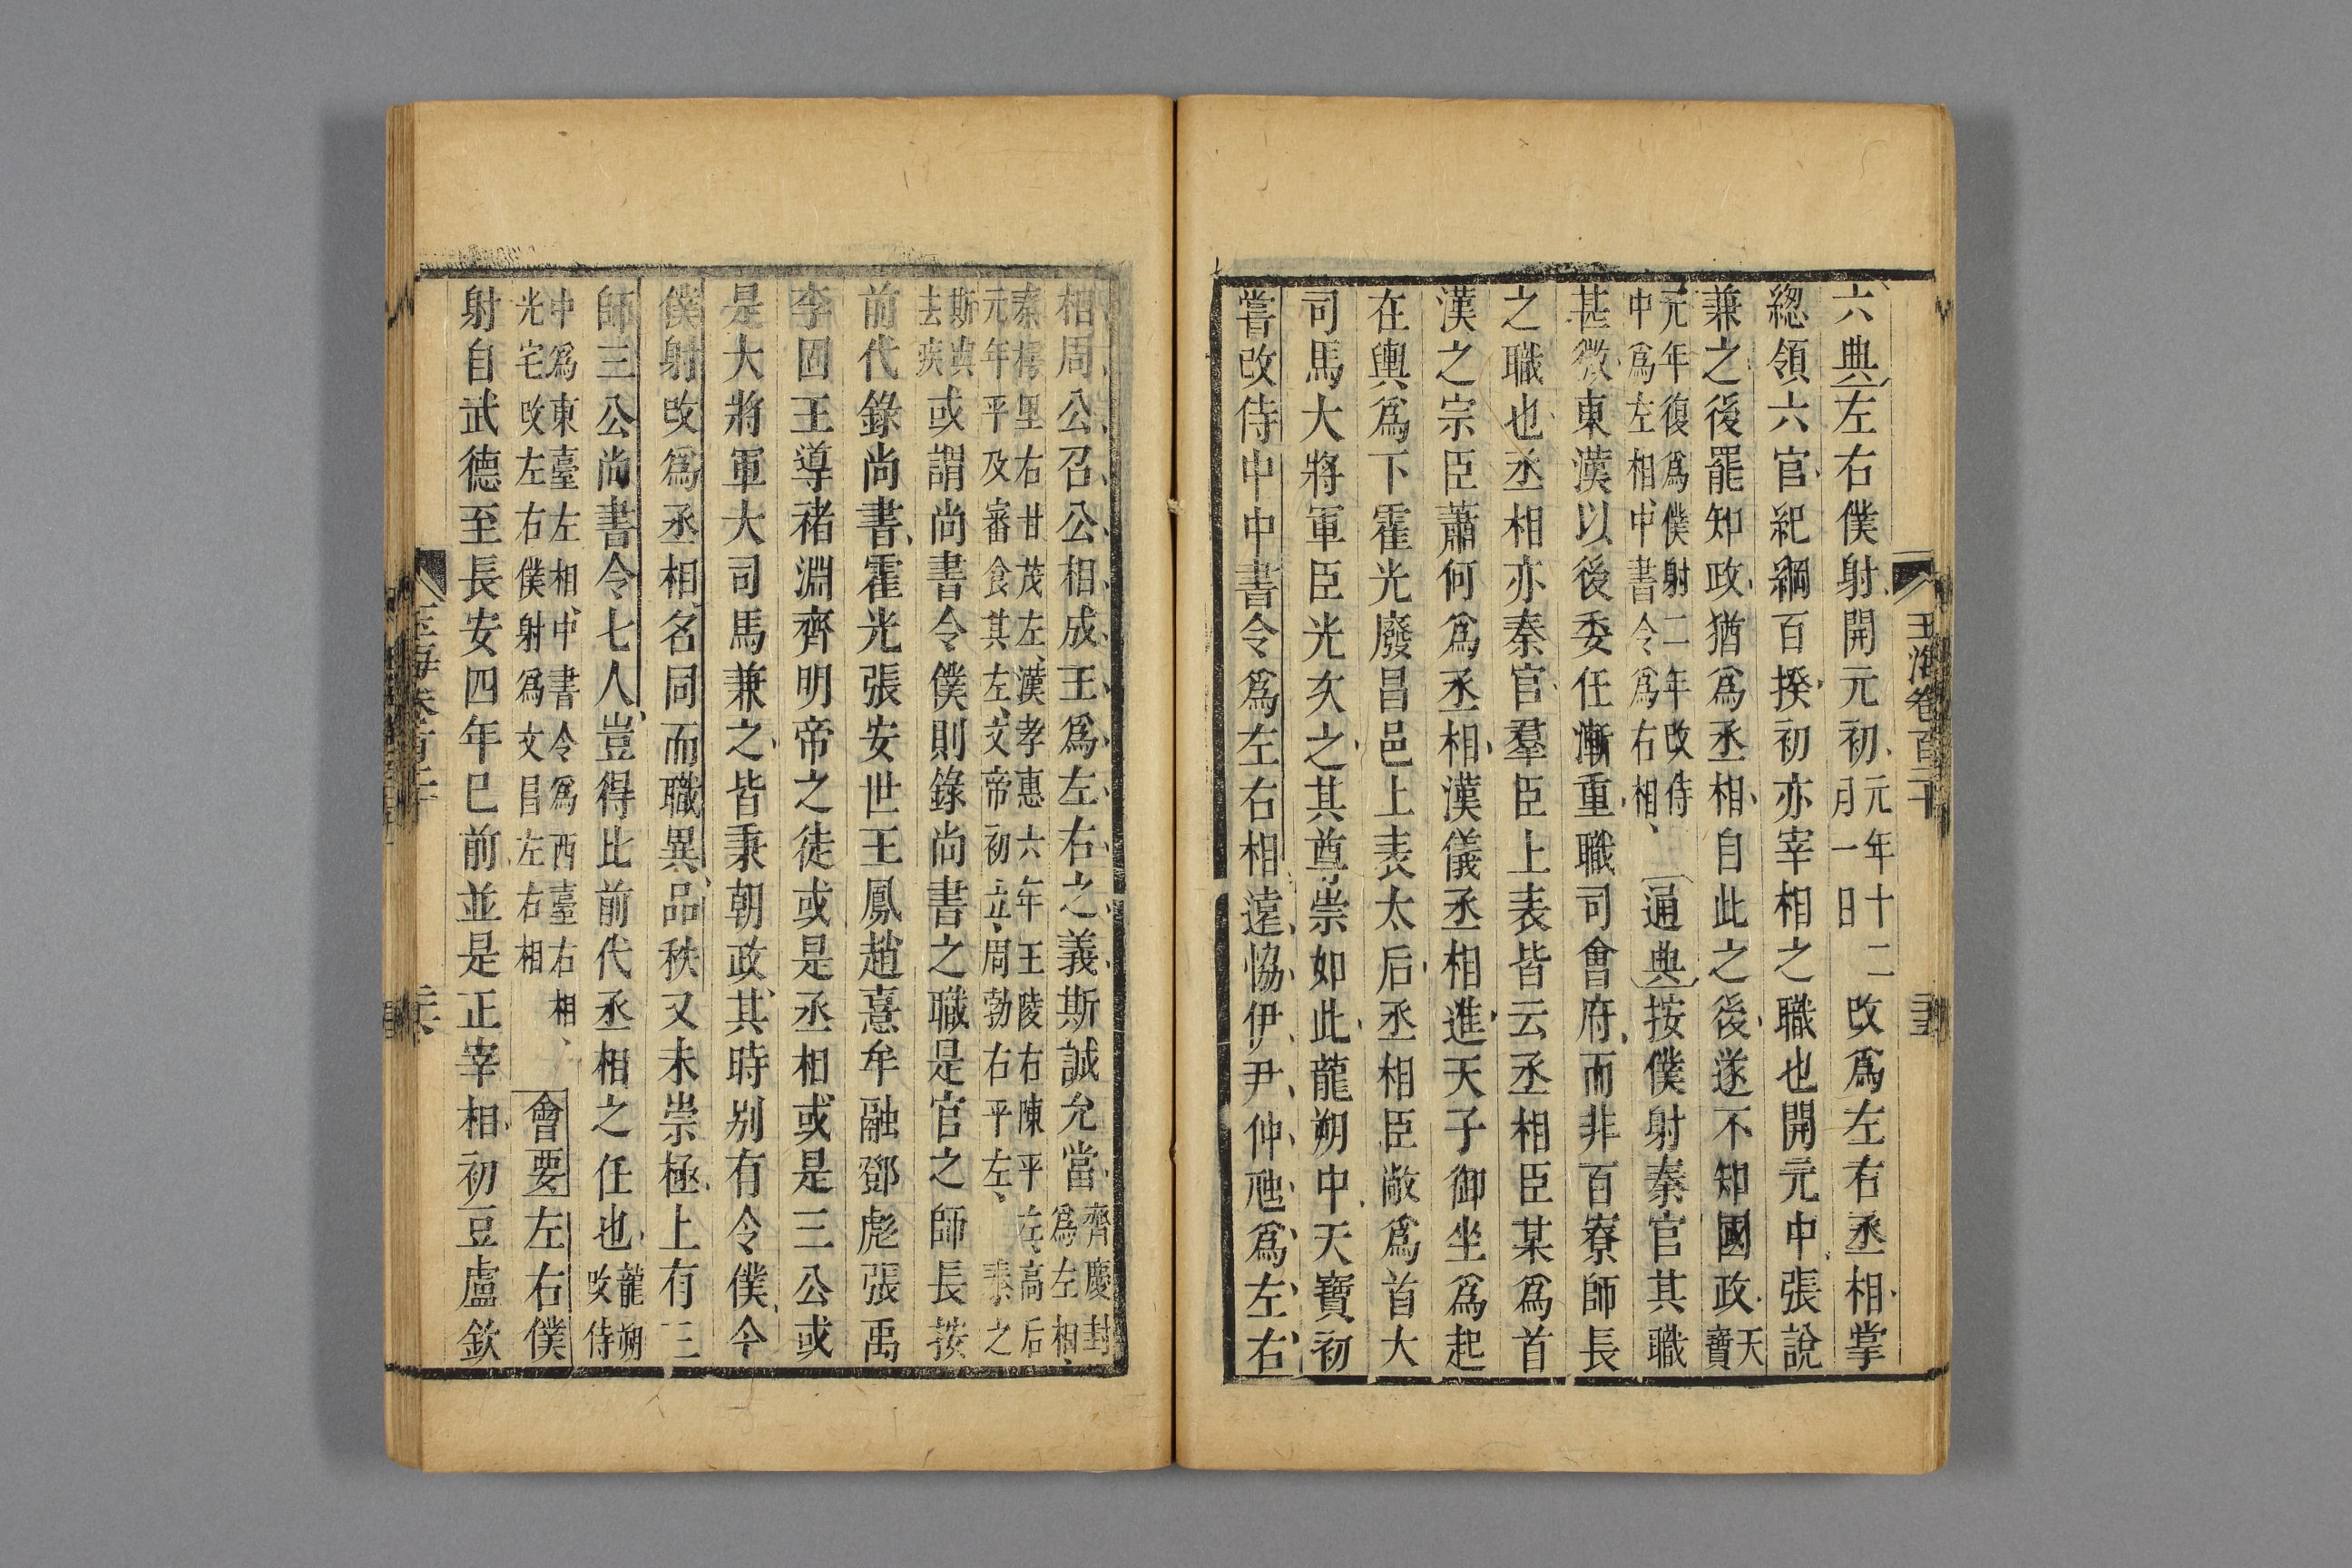 玉海卷百二十
六典左右僕射開元初元年十二月一日改爲左右丞相掌
緫領六官紀綱百揆初亦宰相之職也開元中張說
兼之後罷知政猶爲丞相自此之後遂不知國政天寶
元年復爲僕射二年改侍中爲左相中書令爲右相通典按僕射秦官其職
甚微東漢以後委任漸重職司會府而非百寮師長
之職也丞相亦秦官羣臣上表皆云丞相臣某爲首
漢之宗臣蕭何爲丞相漢儀丞相進天子御坐爲起
在輿爲下霍光廢昌邑上表太后丞相臣敞爲首大
司馬大將軍臣光次之其尊崇如此龍朔中天寶初
嘗改侍中中書令爲左右相遠恊伊尹仲虺爲左右
相周公召公相成王爲左右之義斯誠允當齊慶封爲左相
秦樗里右甘茂左漢孝惠六年王陵右陳平左高后元年平及審食其左文帝初立周勃右平左秦之
斯與去疾或謂尚書令僕則錄尚書之職是官之師長按
前代錄尚書霍光張安世王鳳趙憙牟融鄧彪張禹
李固王導褚淵齊明帝之徒或是丞相或是三公或
是大將軍大司馬兼之皆秉朝政其時別有令僕今
僕射改爲丞相名同而職異品秩又未崇極上有三
師三公尚書令七人豈得比前代丞相之任也龍朔改侍
中爲東臺左相中書令爲西臺右相光宅改左右僕射爲文昌左右相會要左右僕
射自武德至長安四年巳前並是正宰相初豆盧欽
玉海卷百二十